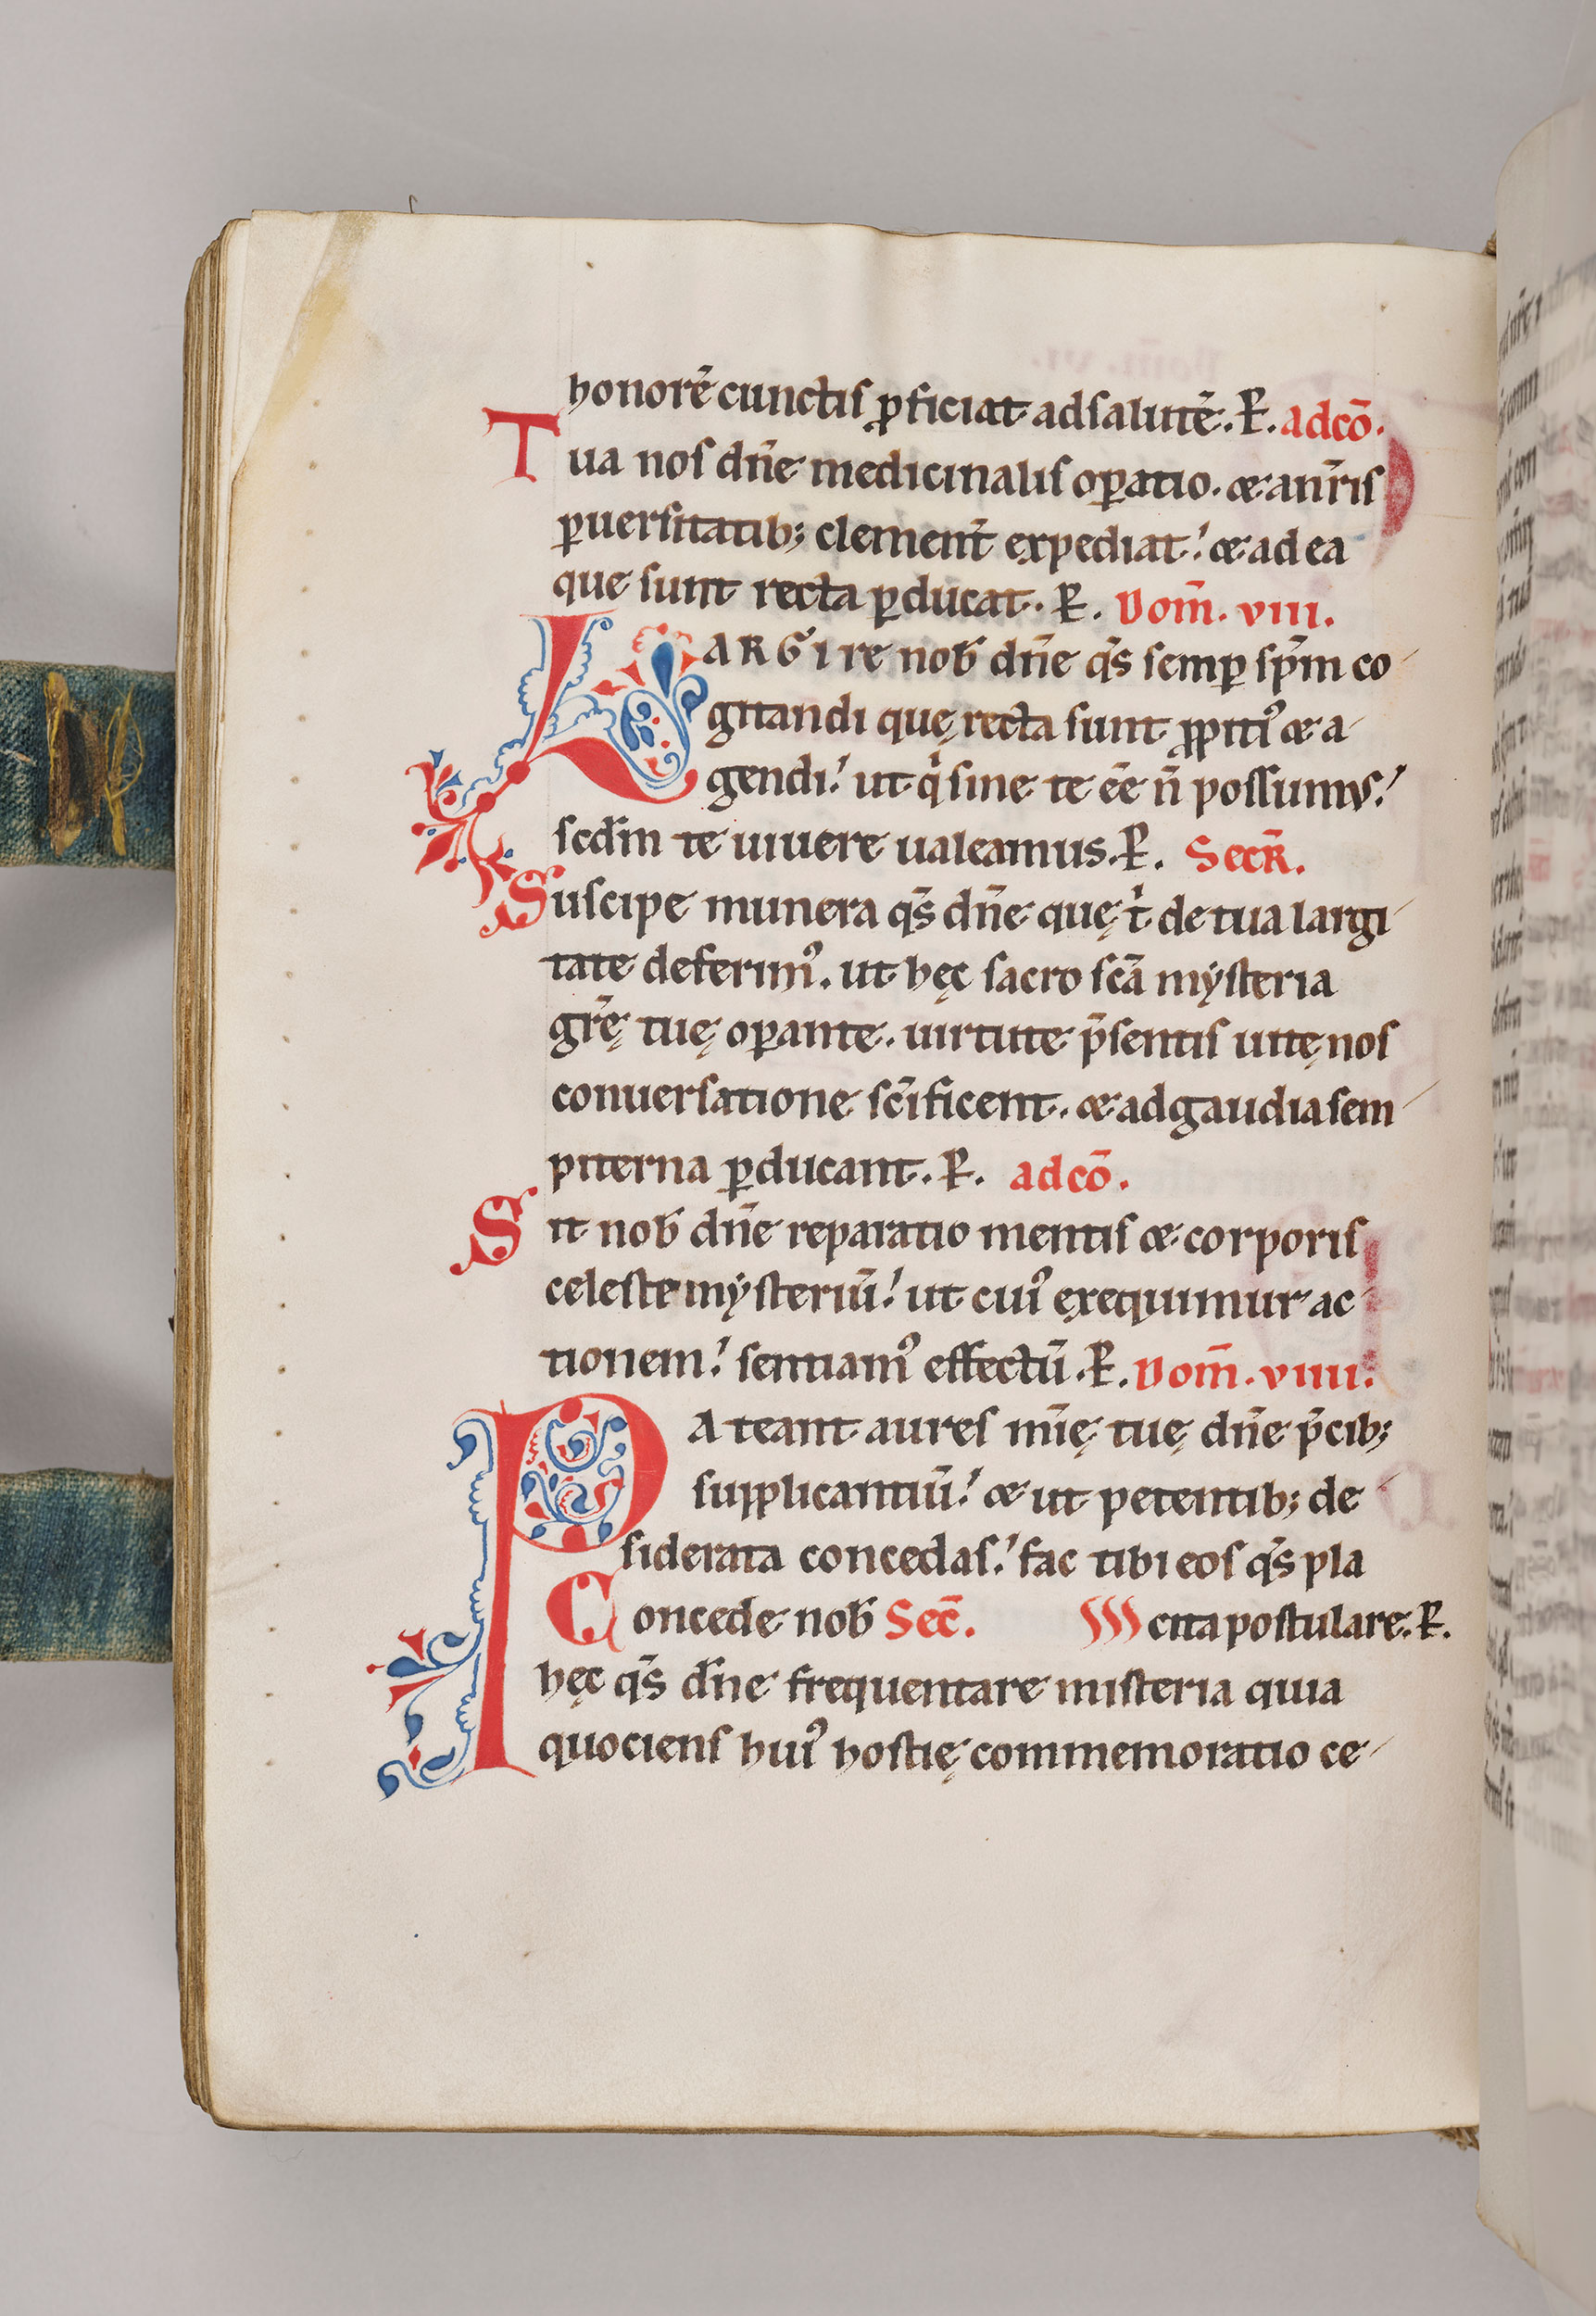 honorē cunctis ꝓficiat ad salutē. ꝑ. ad cō.
Tua nos dn̄e medicinalis oꝑatio. & a nr̄is
ꝑuersitatib; clement̄ expediat. & ad ea
que sunt recta ꝑducat. ꝑ. Dom̄. viii.
LARGire nob̄ dn̄e qs̄ semꝑ sp̄m co
gitandi quę recta sunt ꝓpitiꝰ & a
gendi. ut qͥ sine te ēē n̄ possumus.
scd̄m te uiuere ualeamus. ꝑ. Secr̄.
Suscipe munera qs̄ dn̄e quę tͥ de tua largi
tate deferimꝰ. ut hęc sacro scā mẏsteria
gr̄ę tuę oꝑante. uirtute p̄sentis uitę nos
conuersatione sc̄ificent. & ad gaudia sem
piterna ꝑducant. ꝑ. ad cō.
Sit nob̄ dn̄e reparatio mentis & corporis
celeste mẏsteriū. ut cuiꝰ exequimur ac
tionem. sentiamꝰ effectū. ꝑ. Dom̄. viiii.
PAteant aures mīę tuę dn̄e p̄cib;
supplicantiū. & ut petentib; de
siderata concedas. fac tibi eos qs̄ pla
Concede nob̄ Sec̄. cita postulare. ꝑ.
hęc qs̄ dn̄e frequentare misteria quia
quociens huiꝰ hostię commemoratio ce